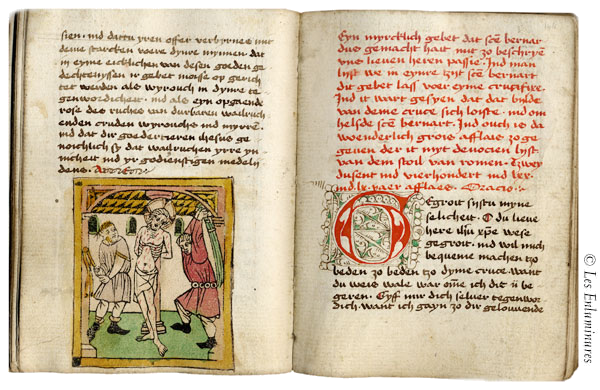 sien. ind dattu yren offer verbyrnes mit
deme starcken vuere dynre mynnen. dat
in eyme eicklichen van desen golden ge
dechtenyssen ir gebet moisse op gerich
tet werden als wyrouch in dynre te-
genwordicheit. ind als eyn opgaende
rose des ruches van durbaren wailruch
enden cruden wyrouchs ind myrre.
ind dat dir goedertieren ihesus ge
noichlich sy dat wailruchen yrre yn
nicheit ind yr godienstigen medelij
dens. Amen
Eyn myrcklych gebet dat scē bernar
dus gemacht hait nut zo beschryen
vns lieuen heren passie. Ind man
lyst we in eynre tzijt scē bernart
dit gebet lass voer eyme crucifixe.
Ind it wart gesyen dat dat bilde
van deme cruce sich loiste. ind om
helsde scē bernart. Ind ouch is da
wonderlich grois afflaes zo ge
geuen der it myt deuocien lyst
van dem stoil van romen. Tzwey
dusent ind vierhondert ind lx
ind lx kaer afflaes. Oracio
O Gegroit sijstu myne
selicheit. O du lieue
here ihū xpē wese
gegroit. ind wil mich
bequeme machen tzo
beden zo beden tzo dyme cruce. want
du weis wale war ōme ich dit is be
geren. Gyff mir dich seluer tegenwor
dich. want ich gayn zo dir gelouuende
© Les Enluminures